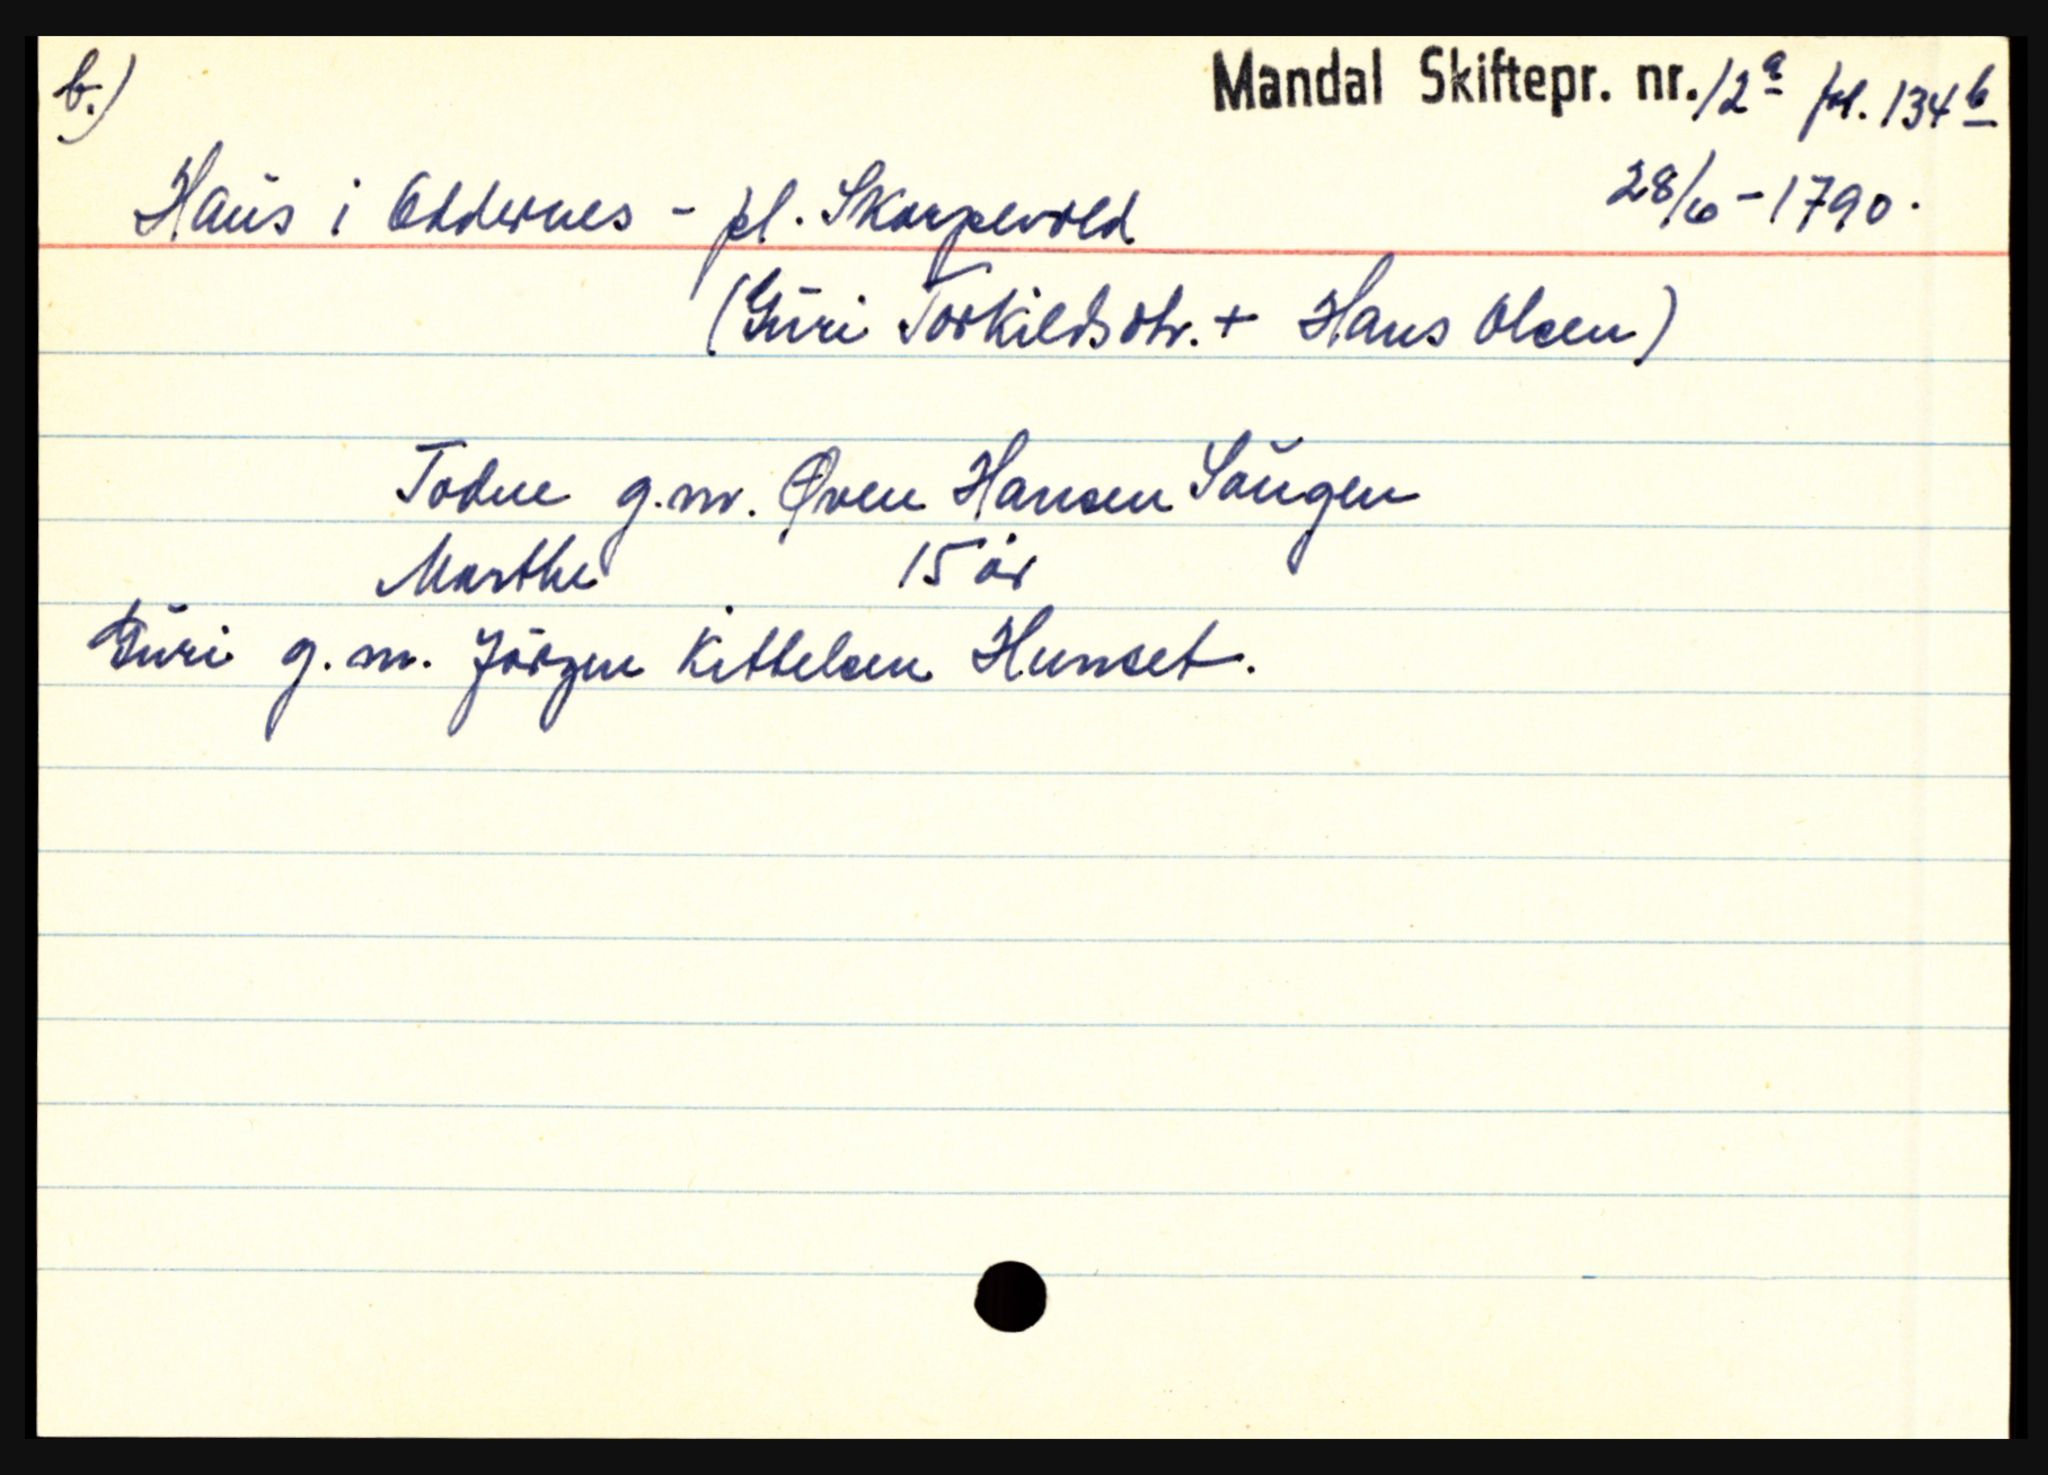 b.)
Mandal Skiftepr. nr. 12a fol. 134b
Haus i Oddernes - pl. Skarpevold
28/6 - 1790.
(Guri Torkildsdtr. + Hans Olsen)
Todne g.m. Øven Hansen Saugen
Marthe 15 år
Guri g.m. Jörgen Kittelsen Hunset.